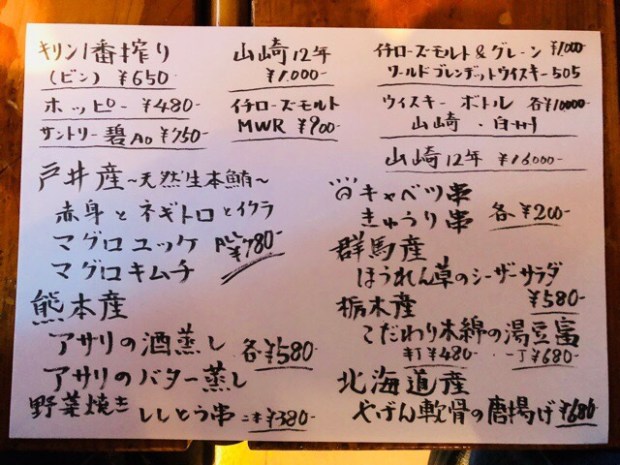 キリン1番搾り
(ビン) ¥650
ホッピー ¥480-
サントリー 碧Ao ¥750-
山崎12年
¥1.000-
イチローズモルト
MWR ¥900-
イチローズモルト&グレーン ¥1.000
ワールドブレンデットウイスキー505
ウイスキー ボトル 各¥10000-
山崎・白州
山崎12年 ¥16000-
戸井産~天然生本鮪~
赤身とネギトロとイクラ
マグロユッケ ALL ¥780-
マグロキムチ
熊本産
アサリの酒蒸し 各¥580-
アサリのバター蒸し
野菜焼き ししとう串 二本¥380-
キャベツ串
きゅうり串 各¥200-
群馬産
ほうれん草のシーザーサラダ
¥580-
栃木産
こだわり木綿の湯豆富
半丁¥480- 一丁¥680-
北海道産
やげん軟骨の唐揚げ ¥680-